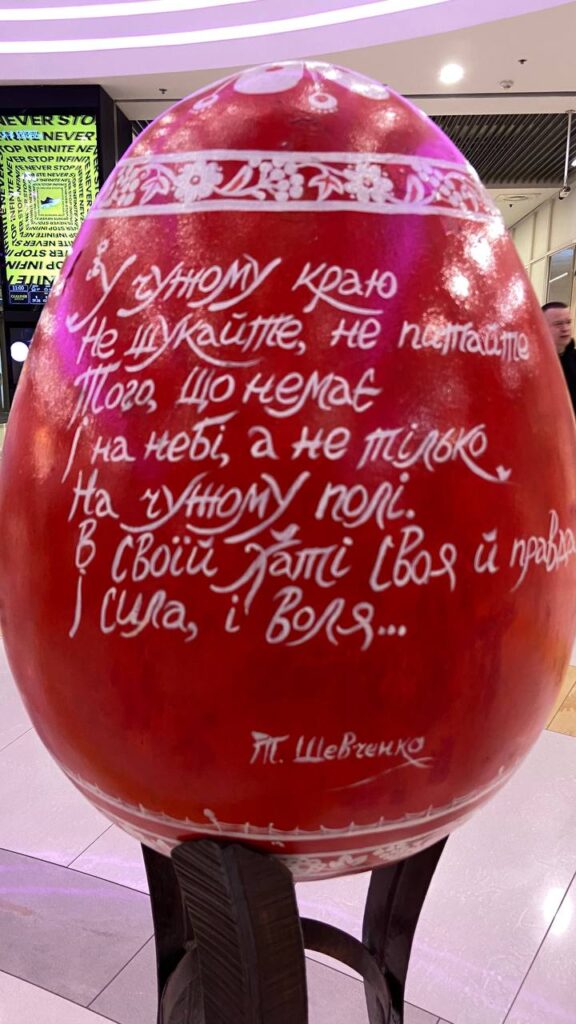 NEVER STOP
INFINITE NEVER
NEVER STOP INFINITE
У чужому краю
Не шукайте, не питайте
Того, що немає
І на небі, а не тілько
На чужому полі.
В своїй хаті своя й правда
І сила, і воля...
Т. Шевченко